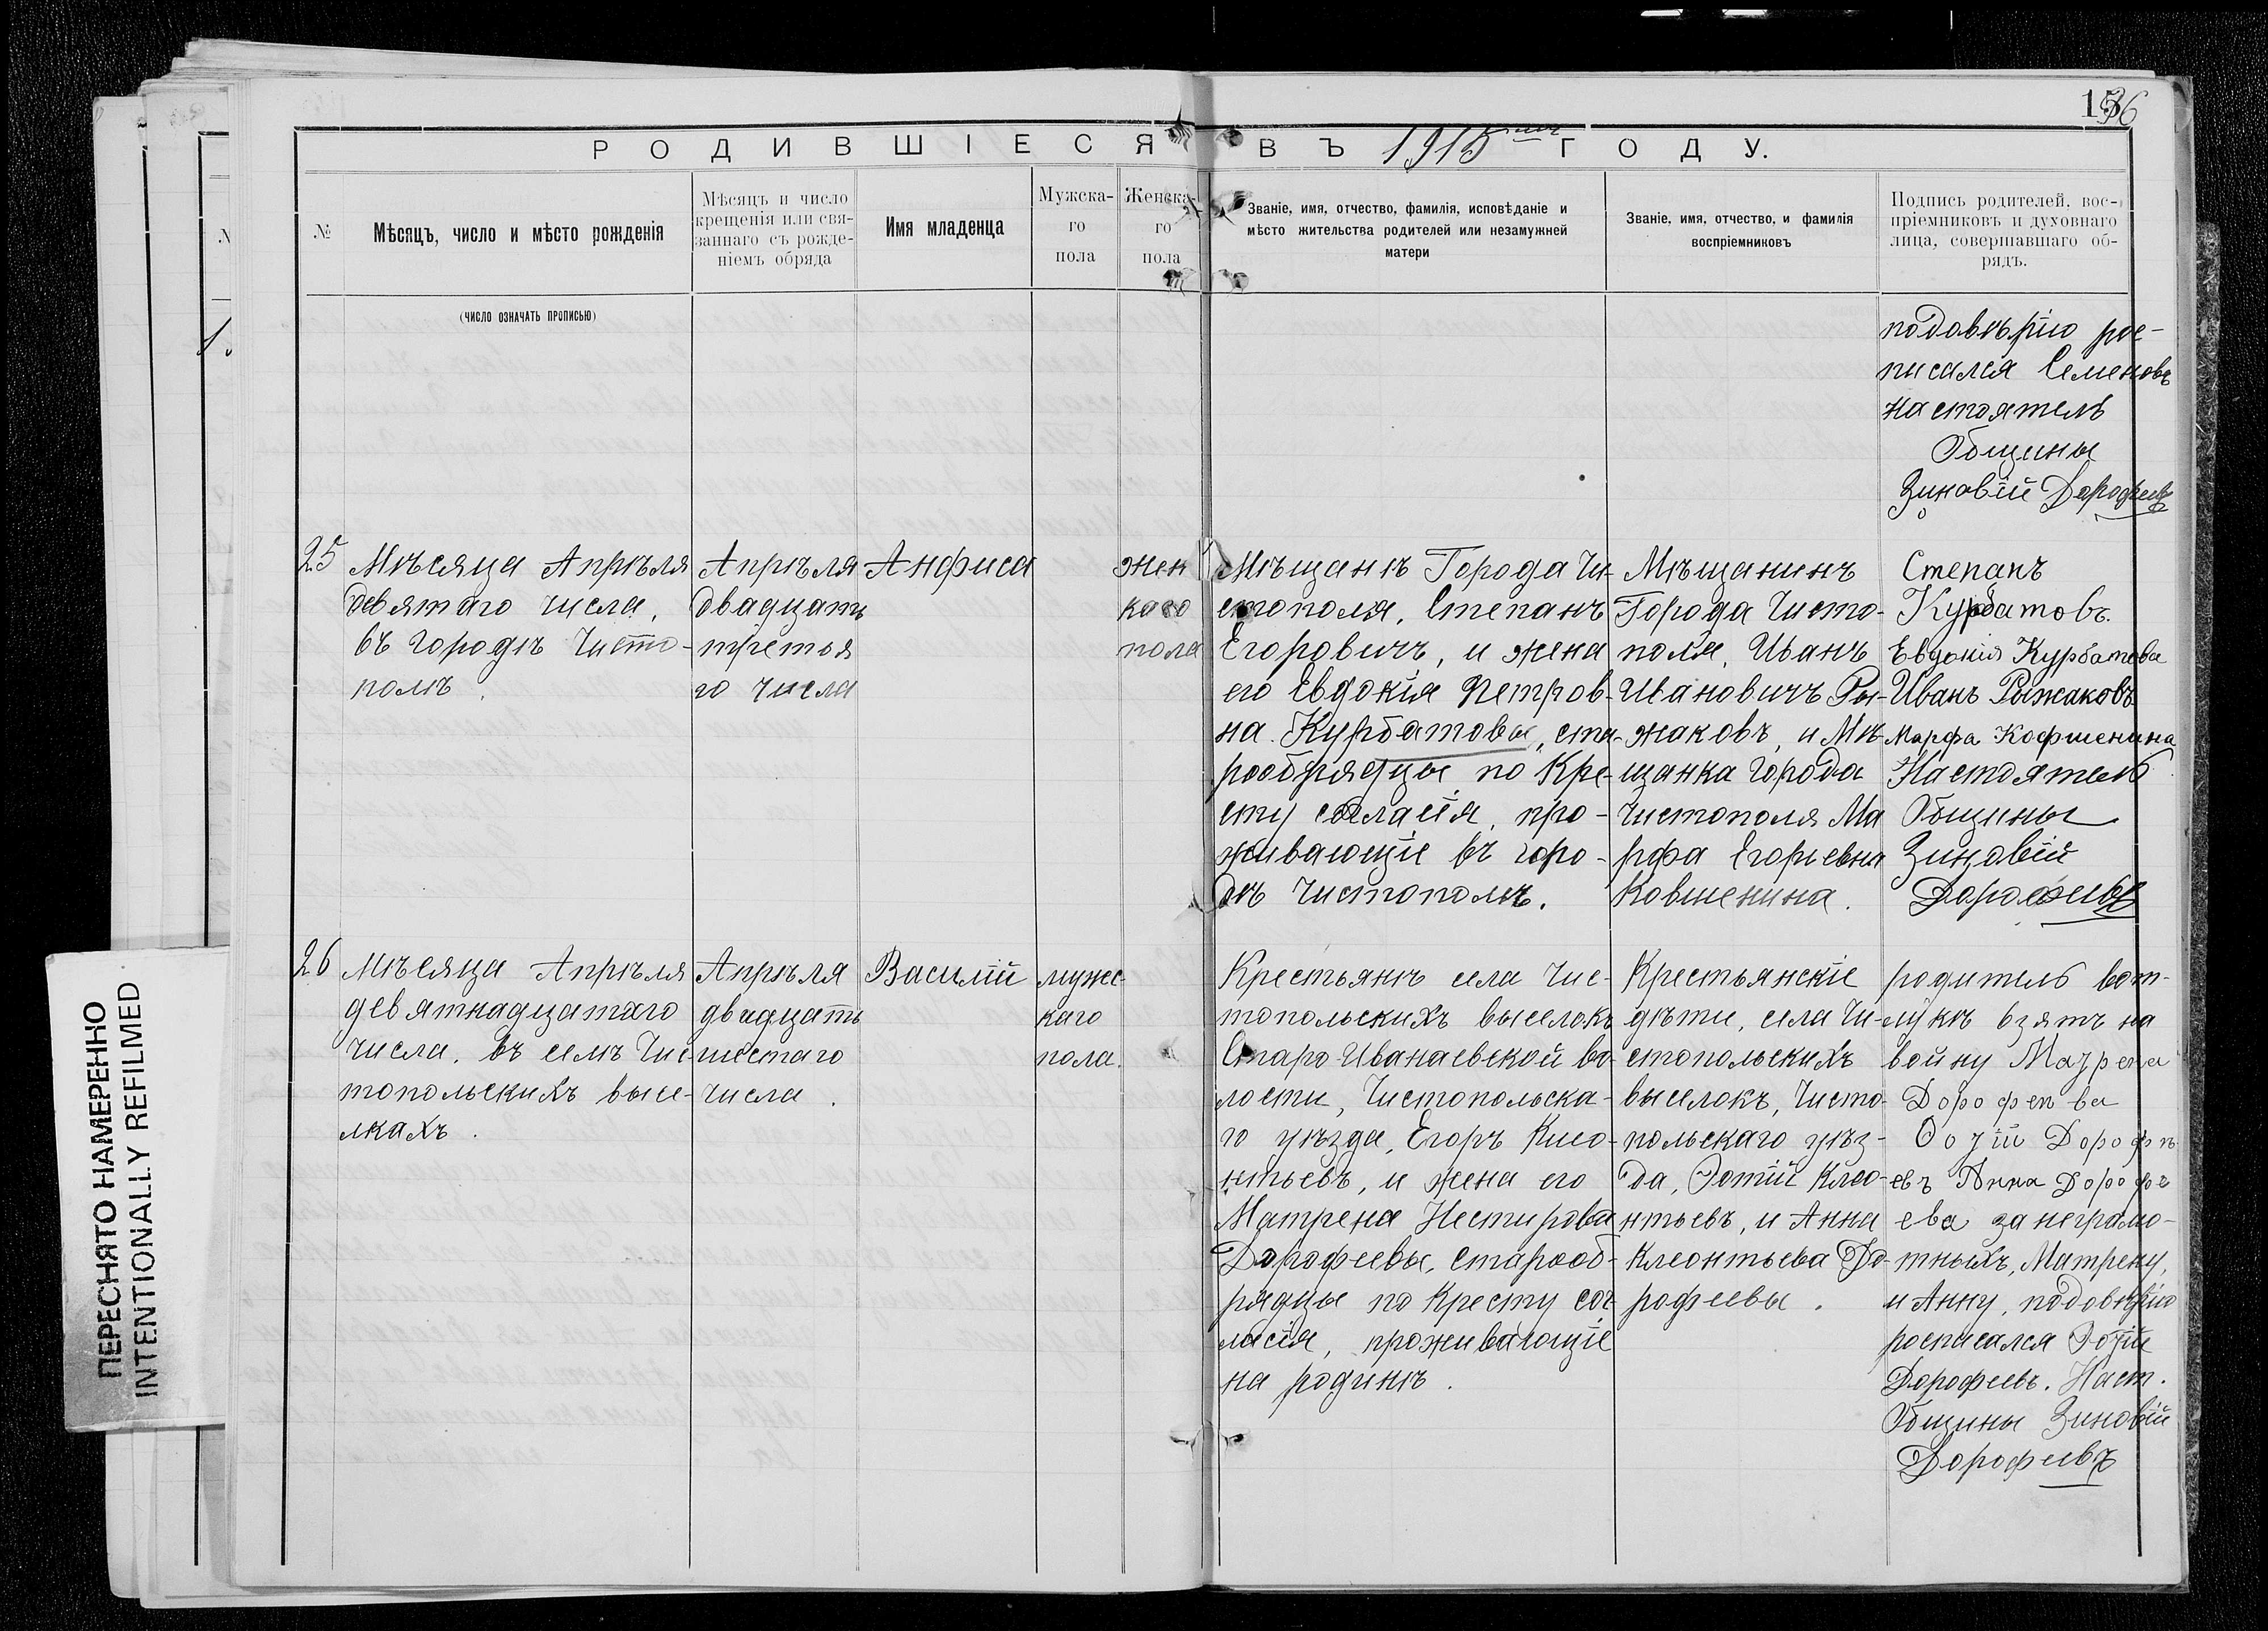 136
РОДИВШІЕСЯ ВЪ 1915 ГОДУ.
№
Мѣсяцъ, число и мѣсто рожденія
(число означать прописью)
Мѣсяцъ и число
крещенія или свя-
заннаго съ рожде-
ніемъ обряда
Имя младенца
Мужска-
го
пола
Женска-
го
пола
Званіе, имя, отчество, фамилія, исповѣданіе и
мѣсто жительства родителей или незамужней
матери
Званіе, имя, отчество, и фамилія
воспріемниковъ
Подпись родителей, вос-
пріемниковъ и духовнаго
лица, совершавшаго об-
рядъ.
подовѣрію рос-
писался Семеновъ
Настоятель
Общины
Зиновій Дорофеевъ
25
Мѣсяца Апрѣля
девятаго числа,
въ городѣ Чисто-
полѣ.
Апрѣля
двадцать
третья
го числа
Анфиса
жен
каго
пола
Мѣщанѣ Города Чи-
стополя, Степанъ
Егоровичъ, и жена
его Евдокія Петров-
на Курбатовы, ста-
рообрядцы по Кре-
сту согласія, про-
живающіе въ горо-
дѣ Чистополѣ.
Мѣщанинъ
Города Чисто-
поля, Иванъ
Ивановичъ Ры-
жаковъ, и Мѣ-
щанка города
Чистополя Ма
рфа Егорьевна
Ковшенина.
Степанъ
Курбатовъ.
Евдокія Курбатова
Иванъ Рыжаковъ
Марфа Кофшенина
Настоятель
Общины
Зиновій
Дорофеевъ
26
Мѣсяца Апрѣля
девятнадцатаго
числа, въ селѣ Чис-
топольскихъ высе-
лкахъ.
Апрѣля
двадцать
шестаго
числа.
Василій
мужес-
каго
пола.
Крестьянѣ села Чис-
топольскихъ выселокъ
Старо-Иванаевской во-
лости, Чистопольска-
го уѣзда, Егоръ Клео-
нтьевъ, и жена его
Матрена Нестирова
Дорофеевы, старооб-
рядцы по Кресту сог-
ласія, проживающіе
на родинѣ.
Крестьянскіе
дѣти, села Чи-
стопольскихъ
выселокъ, Чисто-
польскаго уѣз-
да, Фотій Клео-
нтьевъ, и Анна
Клеонтьева До-
рофеевы.
родитель вот-
лукѣ взятъ на
войну Матрена
Дорофеева
Фотій Дорофѣ
евъ Анна Дорофе
ева за неграмо-
тныхъ, Матрену,
и Анну, подовѣрію
росписался Фотій
Дорофеевъ. Наст.
Общины Зиновій
Дорофеевъ
ПЕРЕСНЯТО НАМЕРЕННО
INTENTIONALLY REFILMED